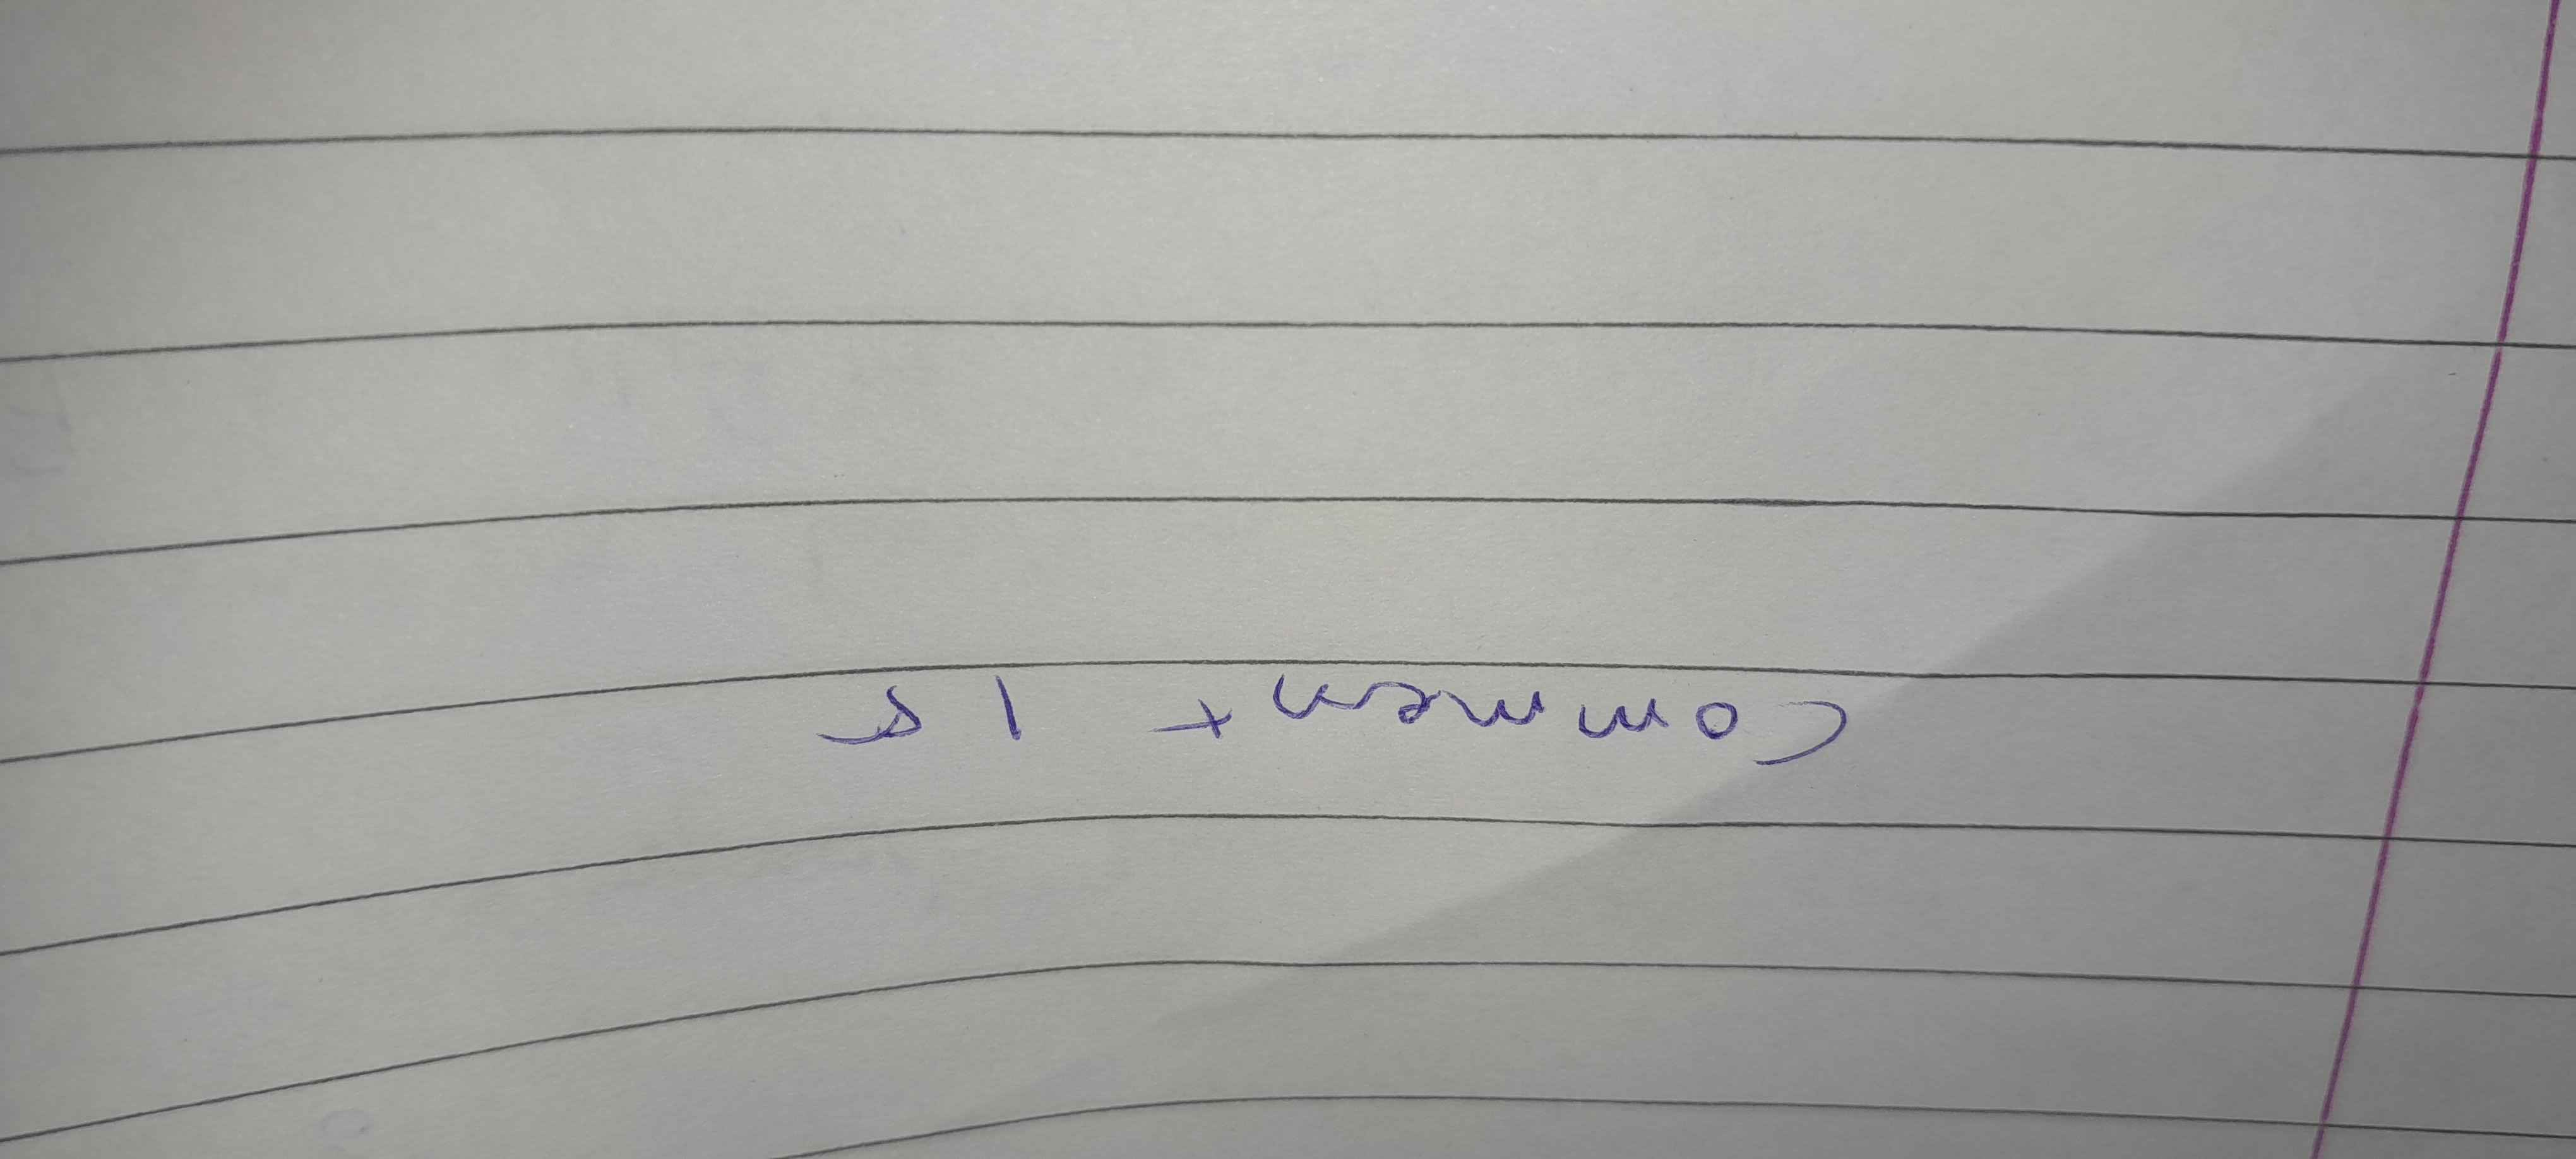 Comment 15